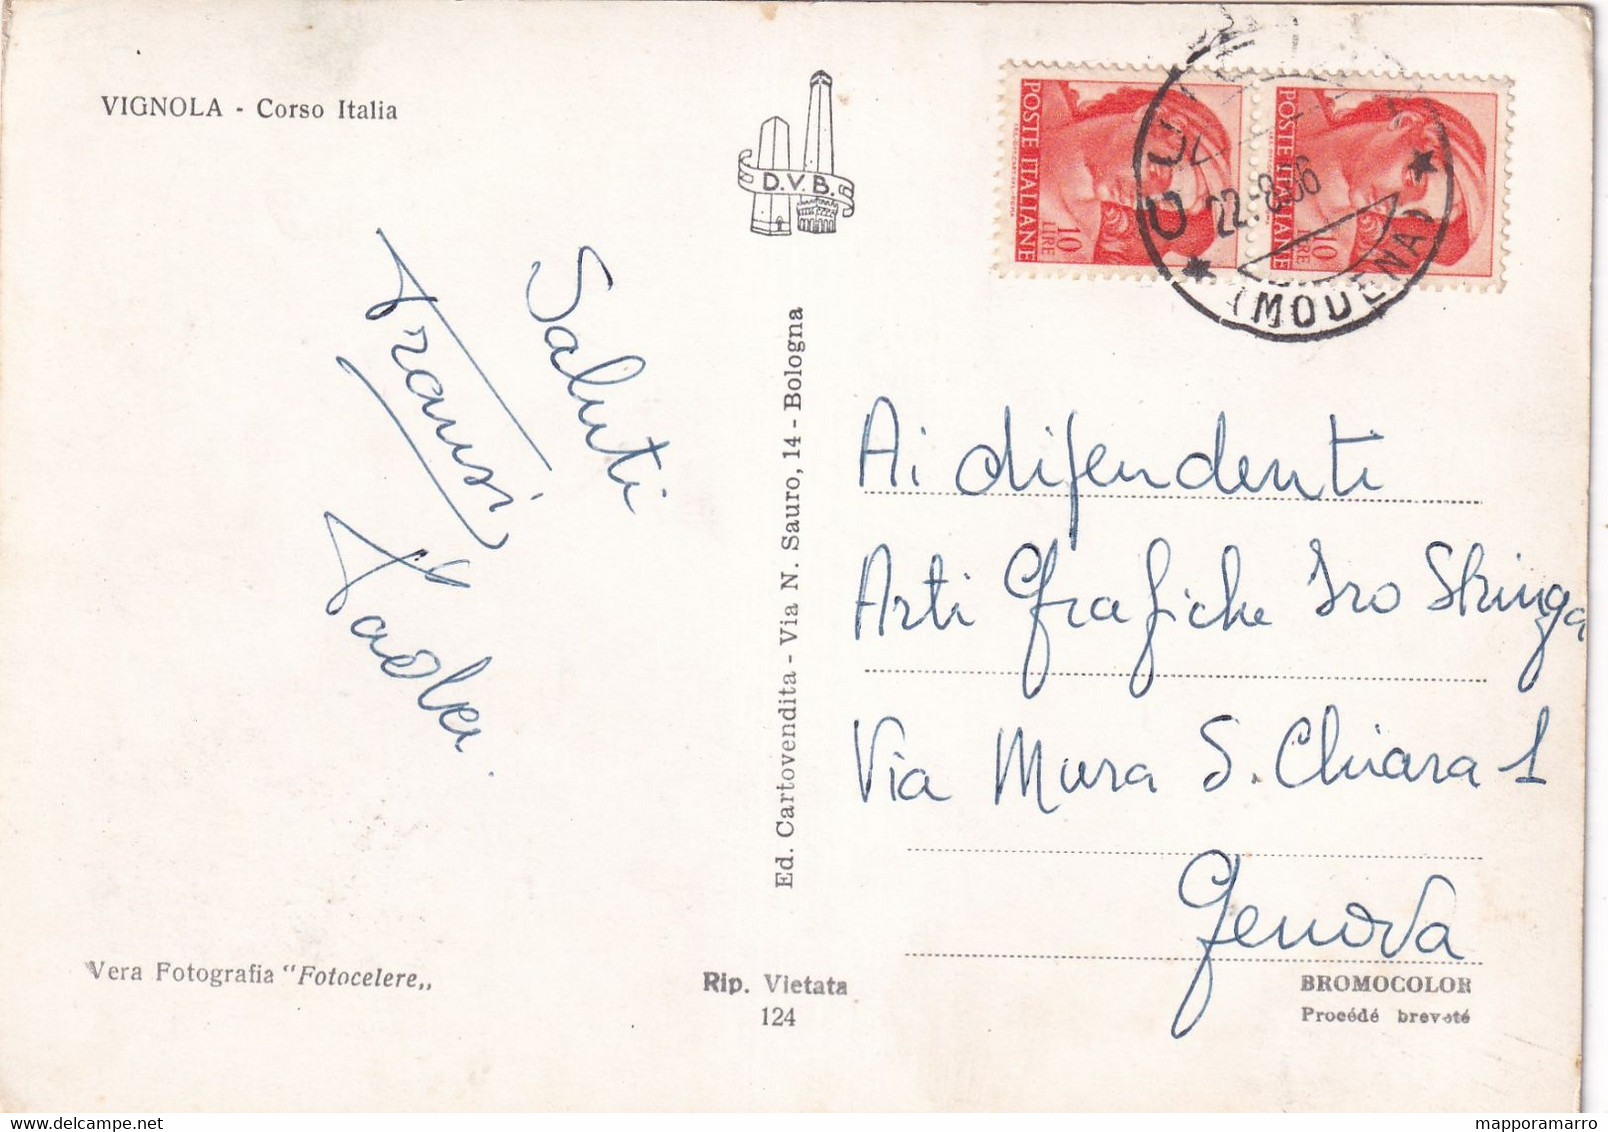 VIGNOLA - Corso Italia
D.V.B.
POSTE ITALIANE
10
LIRE
POSTE ITALIANE
10
LIRE
22.-8.66
(MODENA)
Saluti
Fransi
Paola.
Ed. Cartovendita - Via N. Sauro, 14 - Bologna
Ai dipendenti
Arti Grafiche Iro Stringa
Via Mura S. Chiara 1
Genova
Vera Fotografia "Fotocelere„
Rip. Vietata
124
BROMOCOLOR
Procédé breveté
mapporamarro